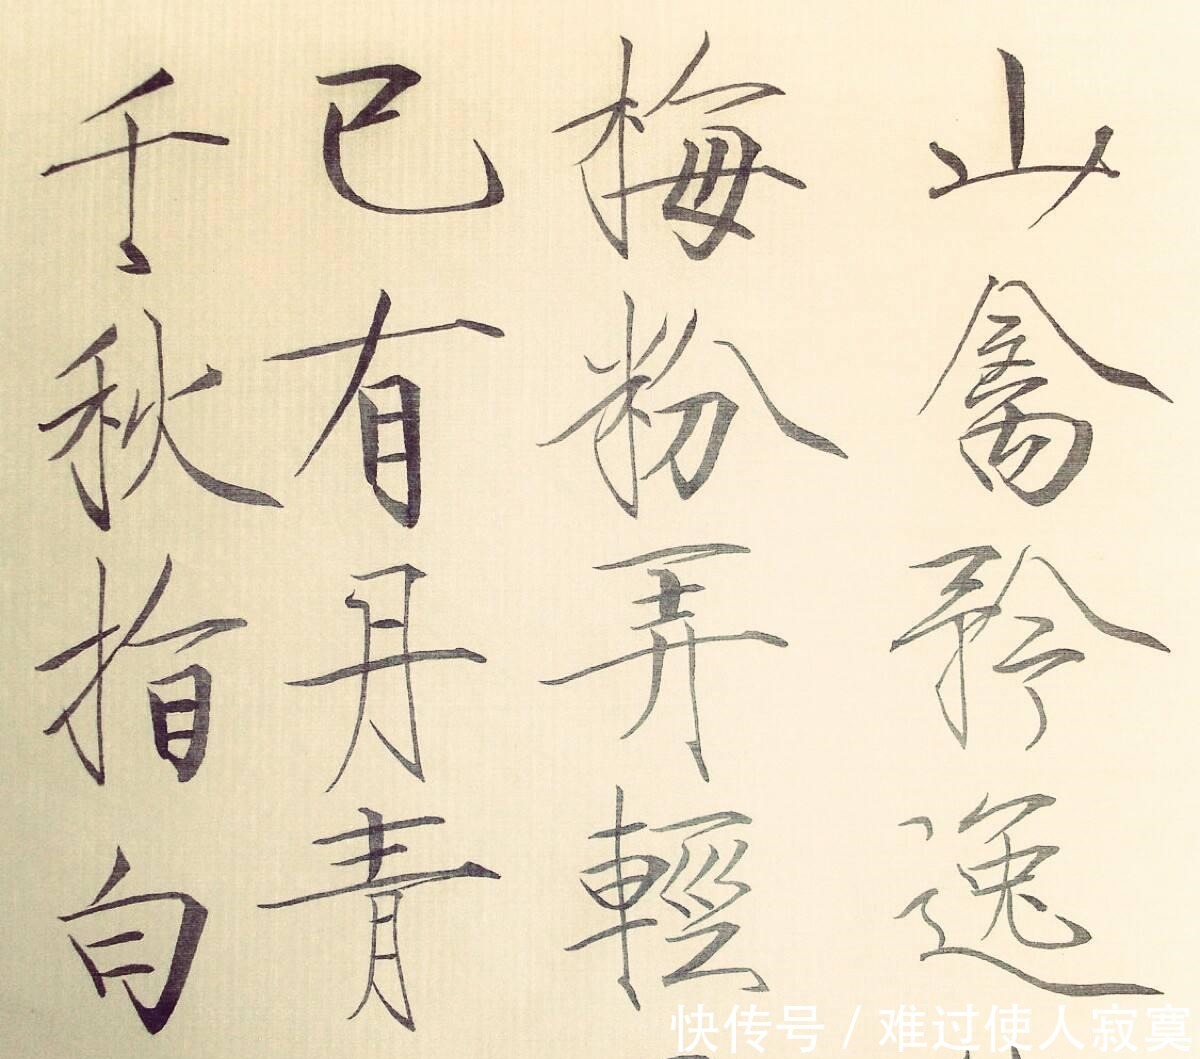 山禽矜逸
梅粉弄輕
已有丹青
千秋指白
快传号 / 难过使人寂寞